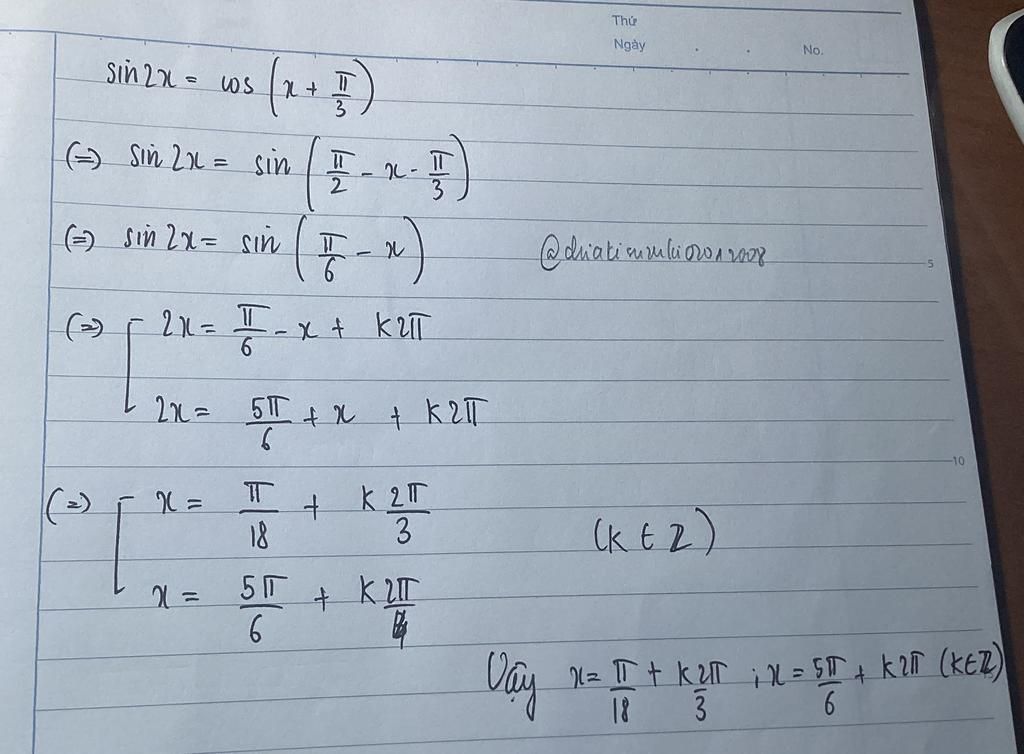 Thứ
Ngày . . No.
sin2x = cos(x + π/3)
(=) sin 2x = sin(π/2 - x - π/3)
(=) sin 2x = sin(π/6 - x)
5
(=) [ 2x = π/6 - x + k2π
2x = 5π/6 + x + k2π
10
(=) [ x = π/18 + k2π/3
(k ∈ Z)
x = 5π/6 + k2π
Vậy x = π/18 + k2π/3 ; x = 5π/6 + k2π (k∈Z)